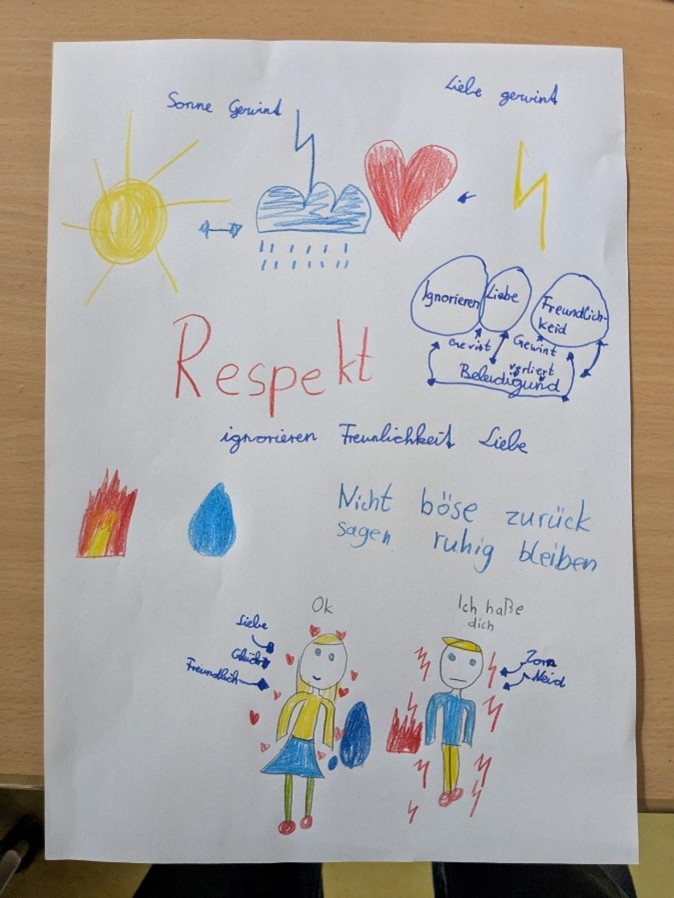 Sonne Gewint
Liebe gewint
Ignorieren
Liebe
Freundlich-
keid
Gewint
Gewint
verliert
Beleidigund
Respekt
ignorieren Freunlichkeit Liebe
Nicht böse zurück
sagen ruhig bleiben
Ok
Ich haße
dich
Liebe
Glück
Freundlich
Zorn
Neid